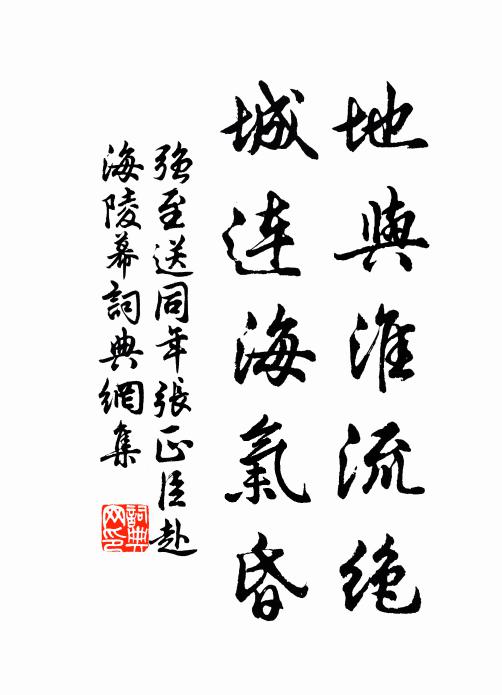 地與淮流絶
城連海氣昏
強至送同年張正臣赴
海陵幕詞典網集
詞典网印